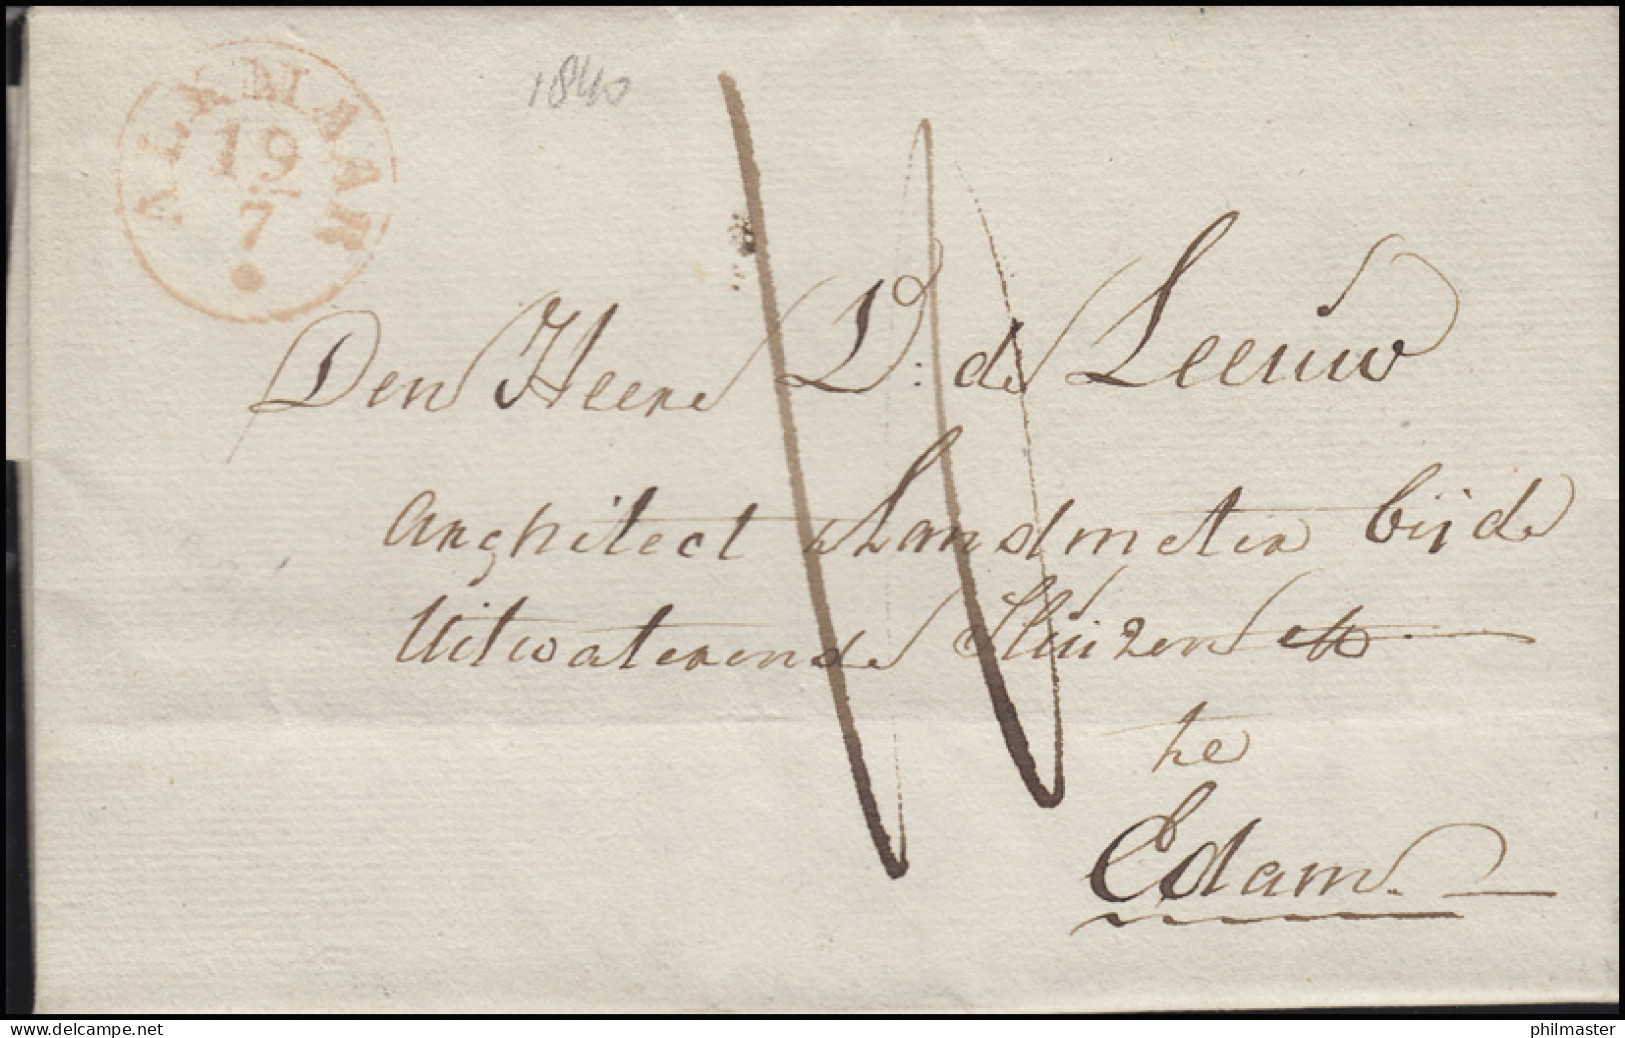 ALKMAAR
19
7
1840
Den Heere D: de Leeuw
Arghitect & Landmeter bij de
Uitwaterende Sluizen
te
Edam.
www.delcampe.net
philmaster